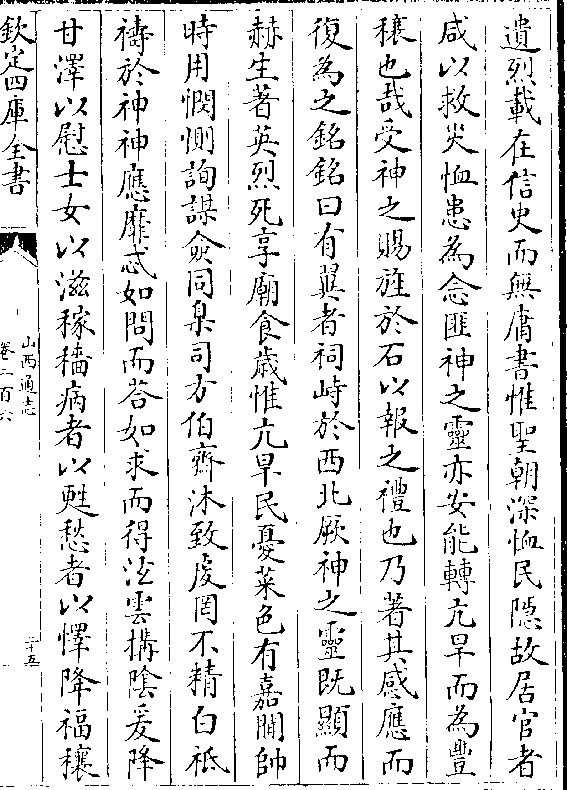 遺烈載在信史而無庸書惟聖朝深恤民隱故居官者
咸以救災恤患為念匪神之靈亦安能轉亢旱而為豐
穰也哉受神之賜旌於石以報之禮也乃著其感應而
復為之銘銘曰有翼者祠峙於西北厥神之靈既顯而
赫生著英烈死享廟食歲惟亢旱民憂菜色有嘉閫帥
時用憫惻詢謀僉同臬司方伯齊沐致虔罔不精白祗
禱於神神應靡忒如問而荅如求而得泫雲搆陰爰降
甘澤以慰士女以滋稼穡病者以甦愁者以懌降福穰
欽定四庫全書
山西通志
卷二百六
二十五